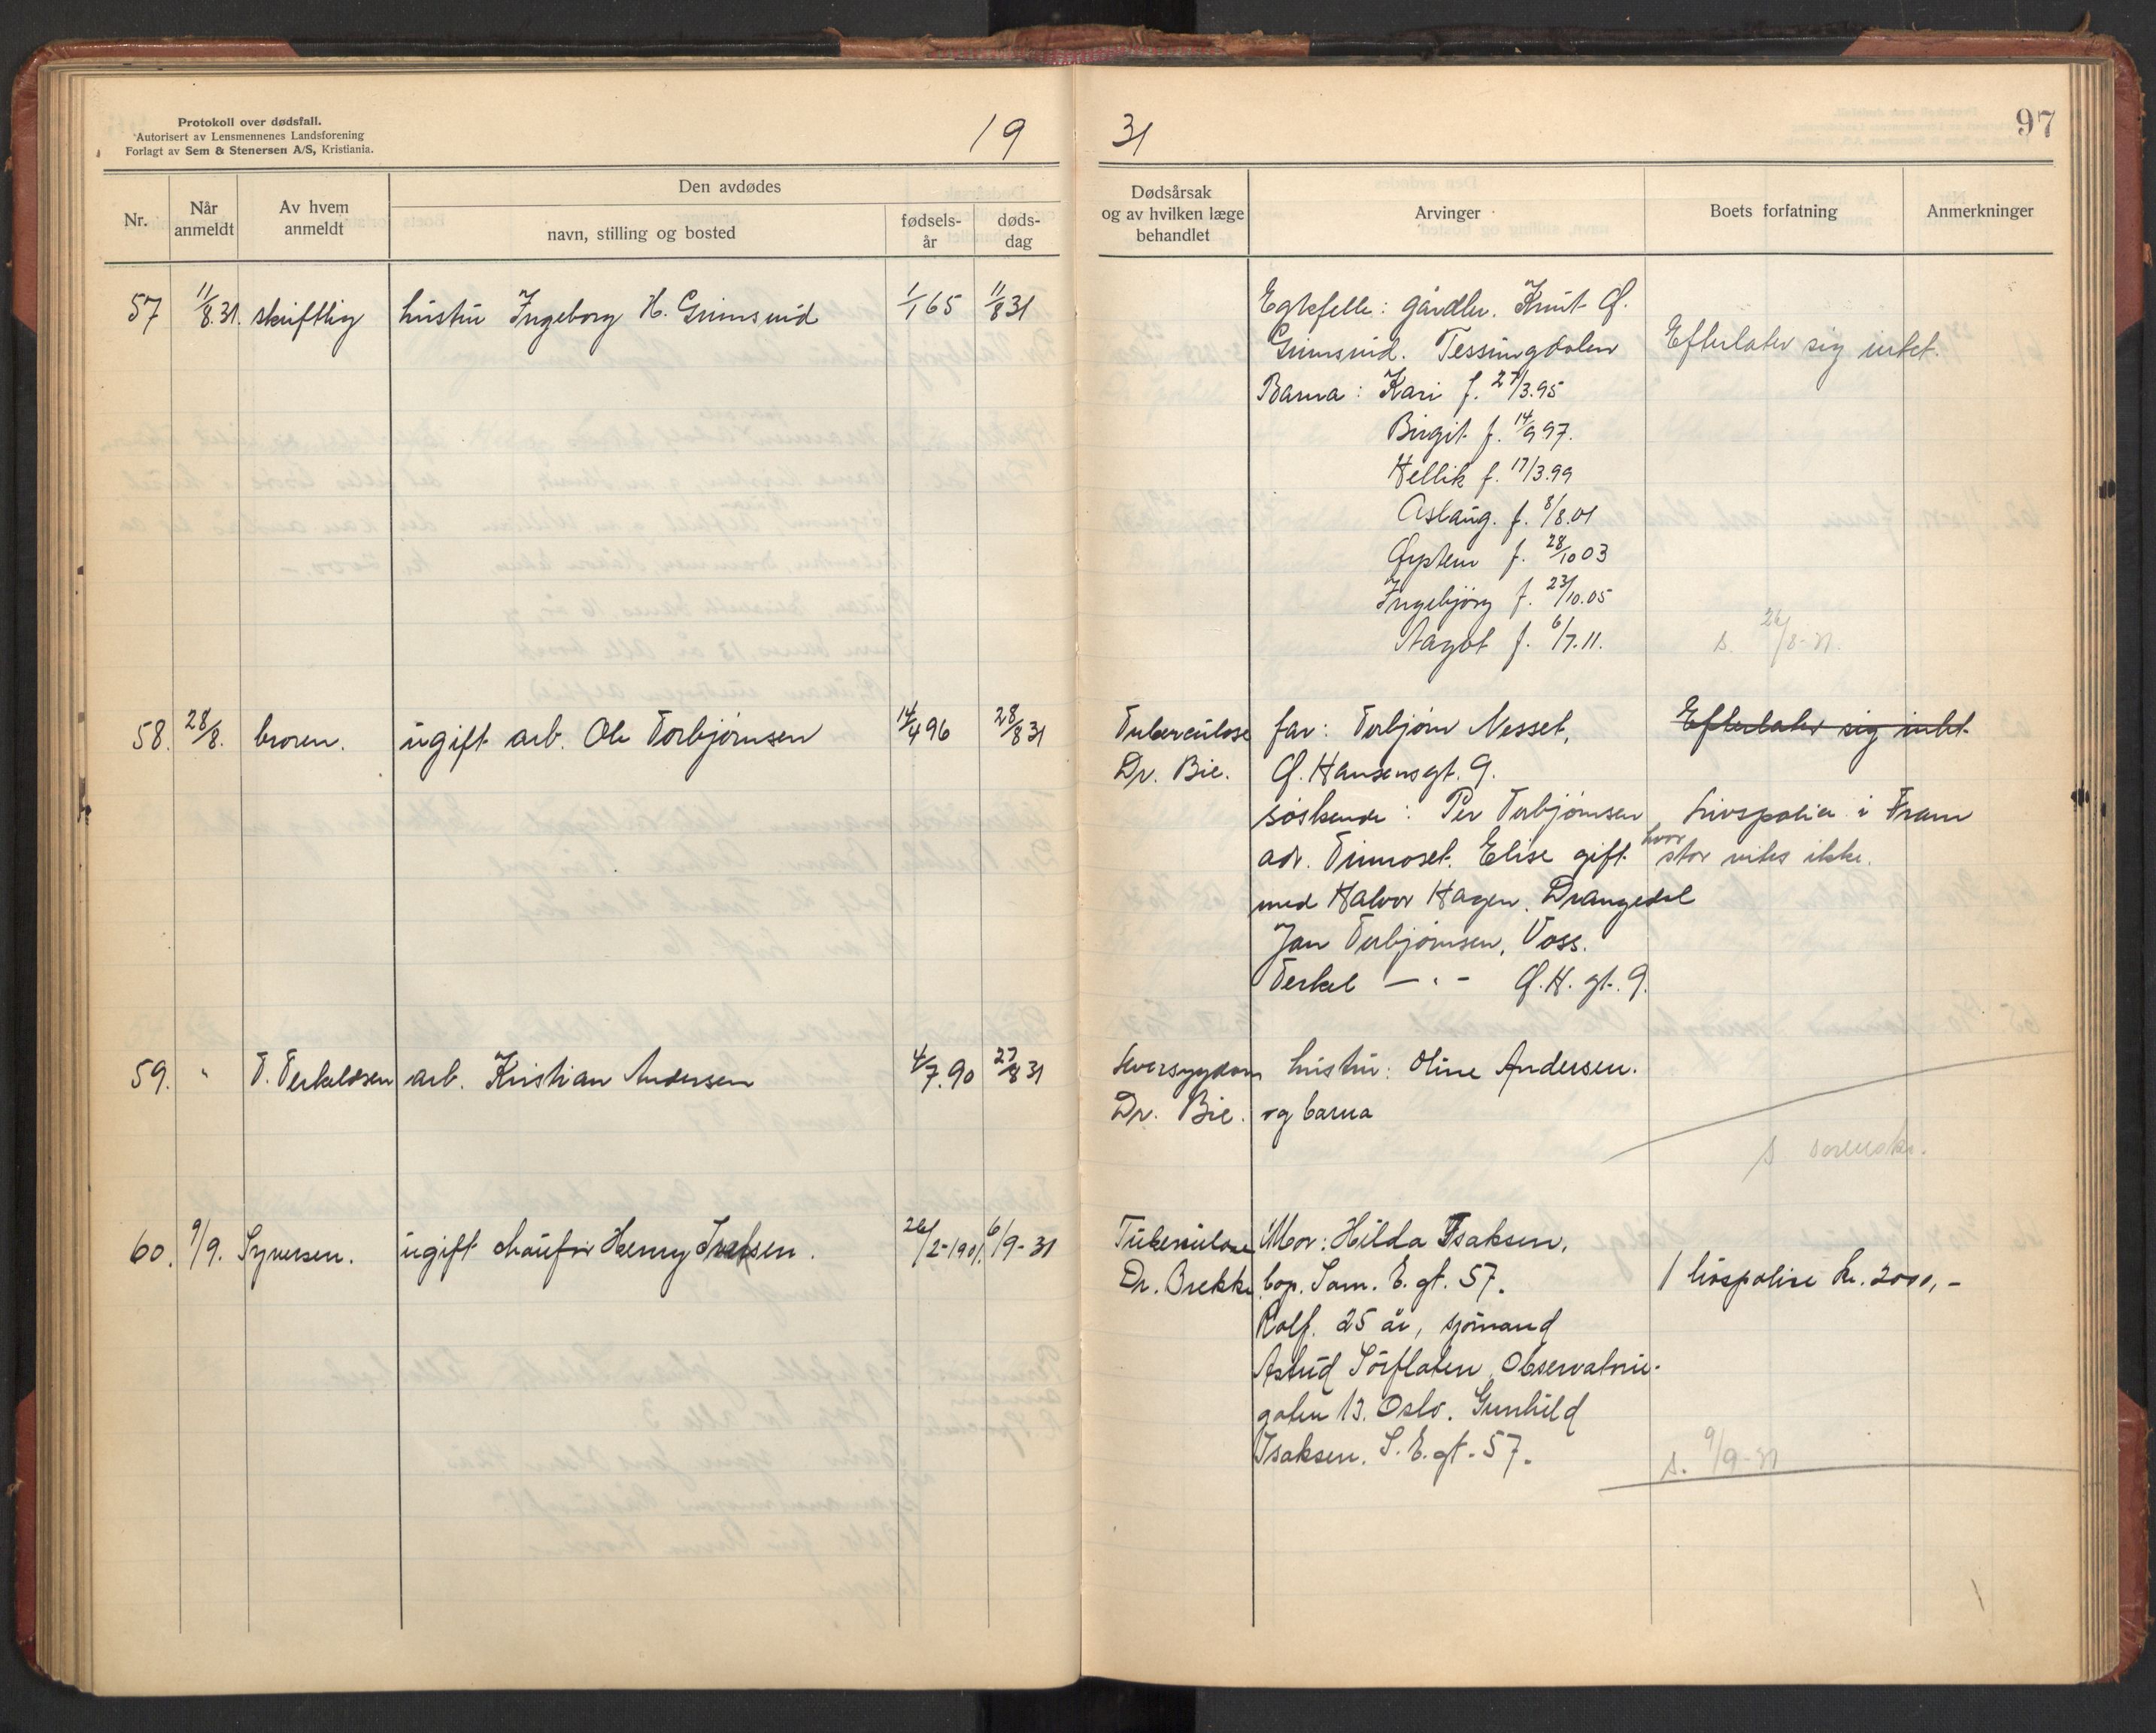 Protokoll over dødsfall.
Autorisert av Lensmennenes Landsforening
Forlagt av Sem & Stenersen A/S, Kristiania.
19
31
97
Nr.
Når anmeldt
Av hvem anmeldt
Den avdødes
navn, stilling og bosted
fødsels-år
døds-dag
Dødsårsak og av hvilken læge behandlet
Arvinger
Boets forfatning
Anmerkninger
57 11/8.31. skriftlig hustru Ingeborg H. Grimsrud 1/1 65 11/8 31
Egtefelle: gårdbr. Knut O.
Grimsrud. Tessungdalen
Efterlater sig intet.
Barna: Kari f. 27/3.95
Birgit f. 14/9 97.
Hellik f. 17/3.99
Aslaug. f. 8/8.01
Øystein f. 28/10 03
Ingebjørg f. 23/10.05
Aagot f. 6/7.11.
s. 26/8-31.
58. 28/8. broren. ugift arb. Ole Torbjørnsen 14/4 96 28/8 31
Tuberculose far: Torbjørn Nesset,
Efterlater sig intet
Dr. Bie. O. Hansensgt. 9.
søskende: Per Torbjørnsen
Livspolise i Fram
adr. Tinnoset. Elise gift
hvor stor vites ikke.
med Halvor Hagen, Drangedal
Jan Torbjørnsen, Voss.
Terkel — . - O.H. gt. 9.
59. " T. Terkelsen arb. Kristian Andersen 4/7.90 27/8 31
Leversygdom hustru: Oline Andersen.
Dr. Bie. og barna
s sorensk.
60. 9/9. Syversen. ugift chaufør Henry Isaksen. 26/2-1901. 6/9-31
Tuberkulose Mor: Hilda Isaksen,
Dr. Brekke bop. Sam. E. gt. 57.
1 livspolise kr. 2000,-
Rolf. 25 år, sjømand
Astrid Sørflaten, Observatorie-
gaten 13. Oslo. Gunhild
Isaksen. S. E. gt. 57.
s. 9/9-31